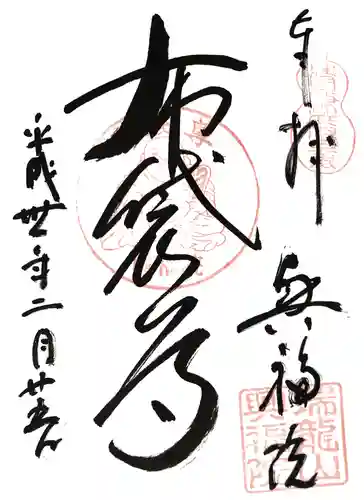 奉拝
布袋尊
興福院
平成丗年二月廿五日
瑞龍山
興福院